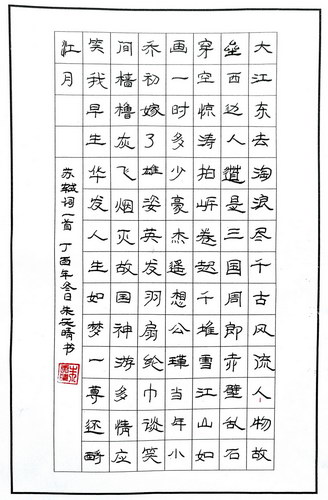 大江东去淘浪尽千古风流人物故
垒西边人道是三国周郎赤壁乱石
穿空惊涛拍岸卷起千堆雪江山如
画一时多少豪杰遥想公瑾当年小
乔初嫁了雄姿英发羽扇纶巾谈笑
间樯橹灰飞烟灭故国神游多情应
笑我早生华发人生如梦一尊还酹
江月
苏轼词一首 丁酉年冬日 朱晴书